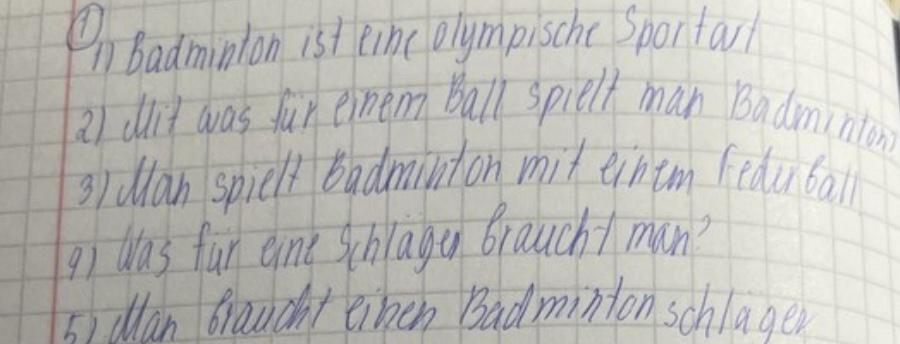 ①
1) Badminton ist eine olympische Sportart
2) Mit was für einem Ball spielt man Badminton?
3) Man spielt Badminton mit einem Federball
4) Was für eine Schläger braucht man?
5) Man braucht einen Badmintonschläger